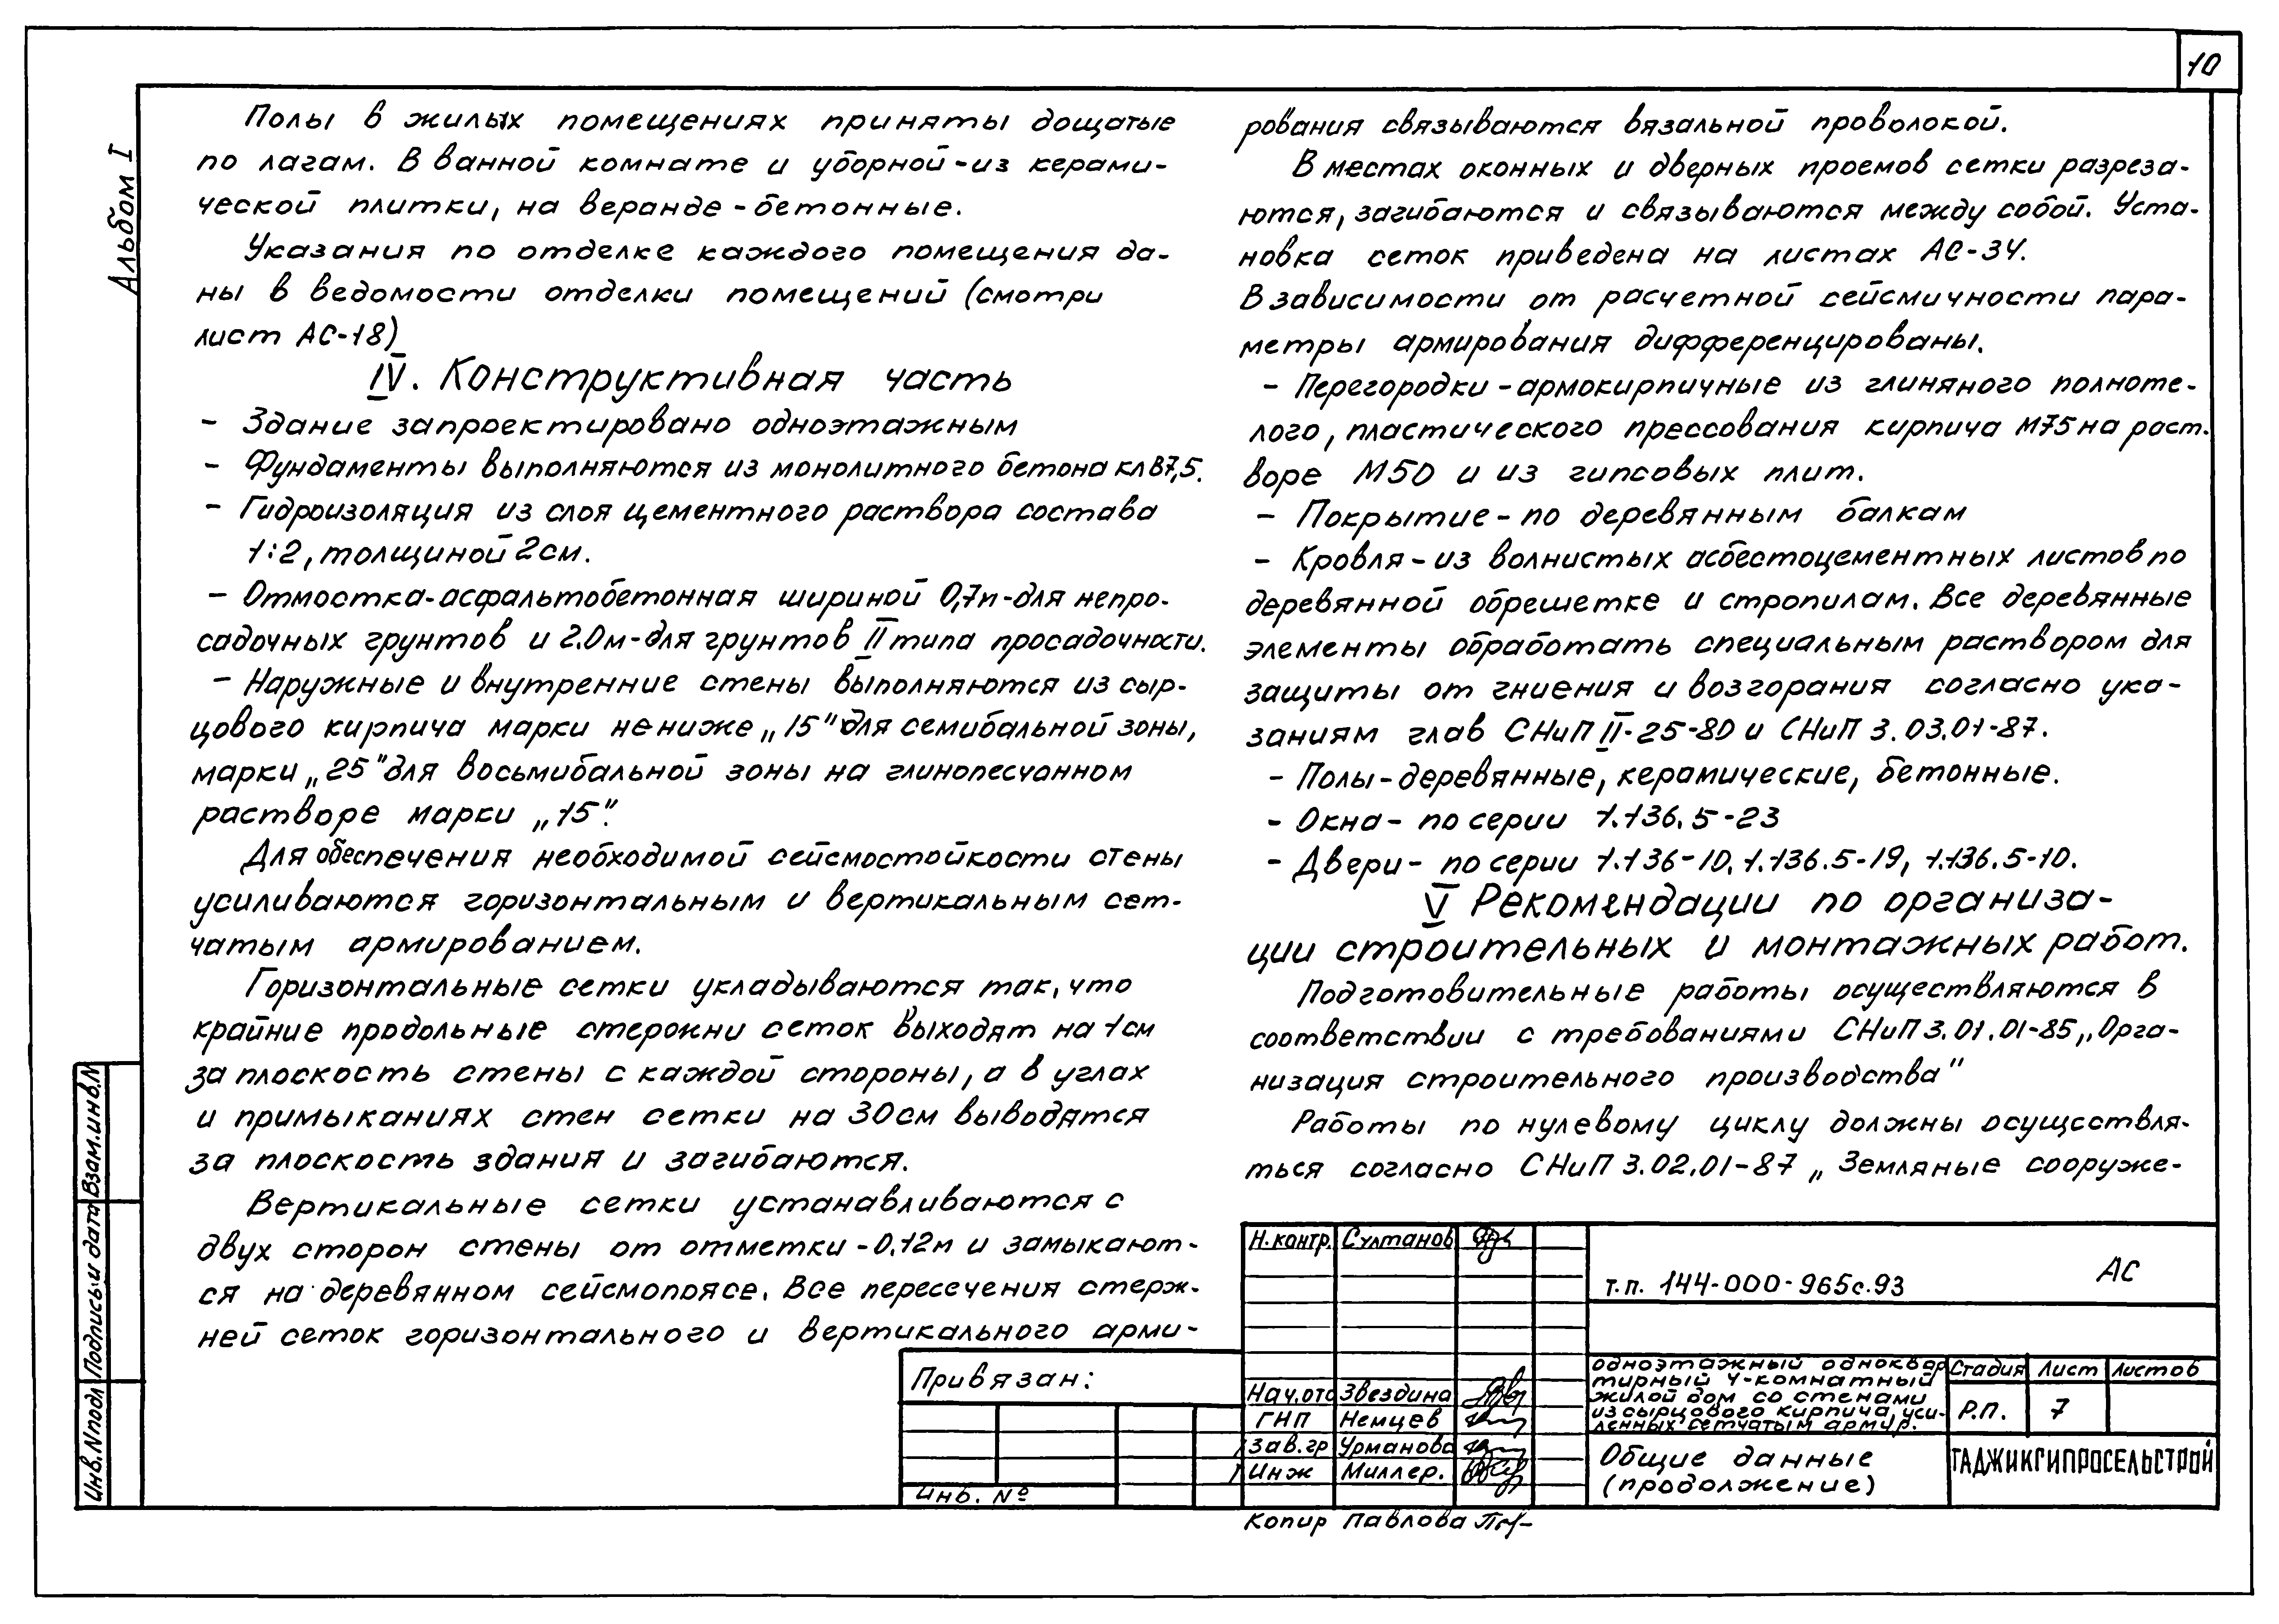 10
Альбом I
Полы в жилых помещениях приняты дощатые
по лагам. В ванной комнате и уборной - из керами-
ческой плитки, на веранде - бетонные.
Указания по отделке каждого помещения да-
ны в ведомости отделки помещений (смотри
лист АС-18)
IV. Конструктивная часть
- Здание запроектировано одноэтажным
- Фундаменты выполняются из монолитного бетона кл В7,5.
- Гидроизоляция из слоя цементного раствора состава
1:2, толщиной 2см.
- Отмостка-асфальтобетонная шириной 0,7м-для непро-
садочных грунтов и 2.0м-для грунтов II типа просадочности.
- Наружные и внутренние стены выполняются из сыр-
цового кирпича марки не ниже „15" для семибальной зоны,
марки „25" для восьмибальной зоны на глинопесчанном
растворе марки „15".
Для обеспечения необходимой сейсмостойкости стены
усиливаются горизонтальным и вертикальным сет-
чатым армированием.
Горизонтальные сетки укладываются так, что
крайние продольные стержни сеток выходят на 1см
за плоскость стены с каждой стороны, а в углах
и примыканиях стен сетки на 30см выводятся
за плоскость здания и загибаются.
Вертикальные сетки устанавливаются с
двух сторон стены от отметки -0.12м и замыкают-
ся на деревянном сейсмопоясе. Все пересечения стерж-
ней сеток горизонтального и вертикального арми-
рования связываются вязальной проволокой.
В местах оконных и дверных проемов сетки разреза-
ются, загибаются и связываются между собой. Уста-
новка сеток приведена на листах АС-34.
В зависимости от расчетной сейсмичности пара-
метры армирования дифференцированы.
- Перегородки - армокирпичные из глиняного полноте-
лого, пластического прессования кирпича М75 на раст-
воре М50 и из гипсовых плит.
- Покрытие - по деревянным балкам
- Кровля - из волнистых асбестоцементных листов по
деревянной обрешетке и стропилам. Все деревянные
элементы обработать специальным раствором для
защиты от гниения и возгорания согласно ука-
заниям глав СНиП II-25-80 и СНиП 3.03.01-87.
- Полы - деревянные, керамические, бетонные.
- Окна - по серии 1.136.5-23
- Двери - по серии 1.136-10, 1.136.5-19, 1.136.5-10.
V Рекомендации по организа-
ции строительных и монтажных работ.
Подготовительные работы осуществляются в
соответствии с требованиями СНиП 3.01.01-85 „Орга-
низация строительного производства"
Работы по нулевому циклу должны осуществля-
ться согласно СНиП 3.02.01-87 „Земляные сооруже-
Взам.инв.N
Подпись и дата
Инв.Nподл
Привязан:
Инв. №
Н.контр. Султанов
Нач.отд Звездина
ГНП Немцев
Зав.гр Урманова
Инж Миллер.
т.п. 144-000-965с.93 АС
одноэтажный одноквар
тирный 4-комнатный
жилой дом со стенами
из сырцового кирпича, уси-
ленных сетчатым армир.
Стадия Лист Листов
Р.П. 7
Общие данные
(продолжение)
ТАДЖИКГИПРОСЕЛЬСТРОЙ
Копир Павлова